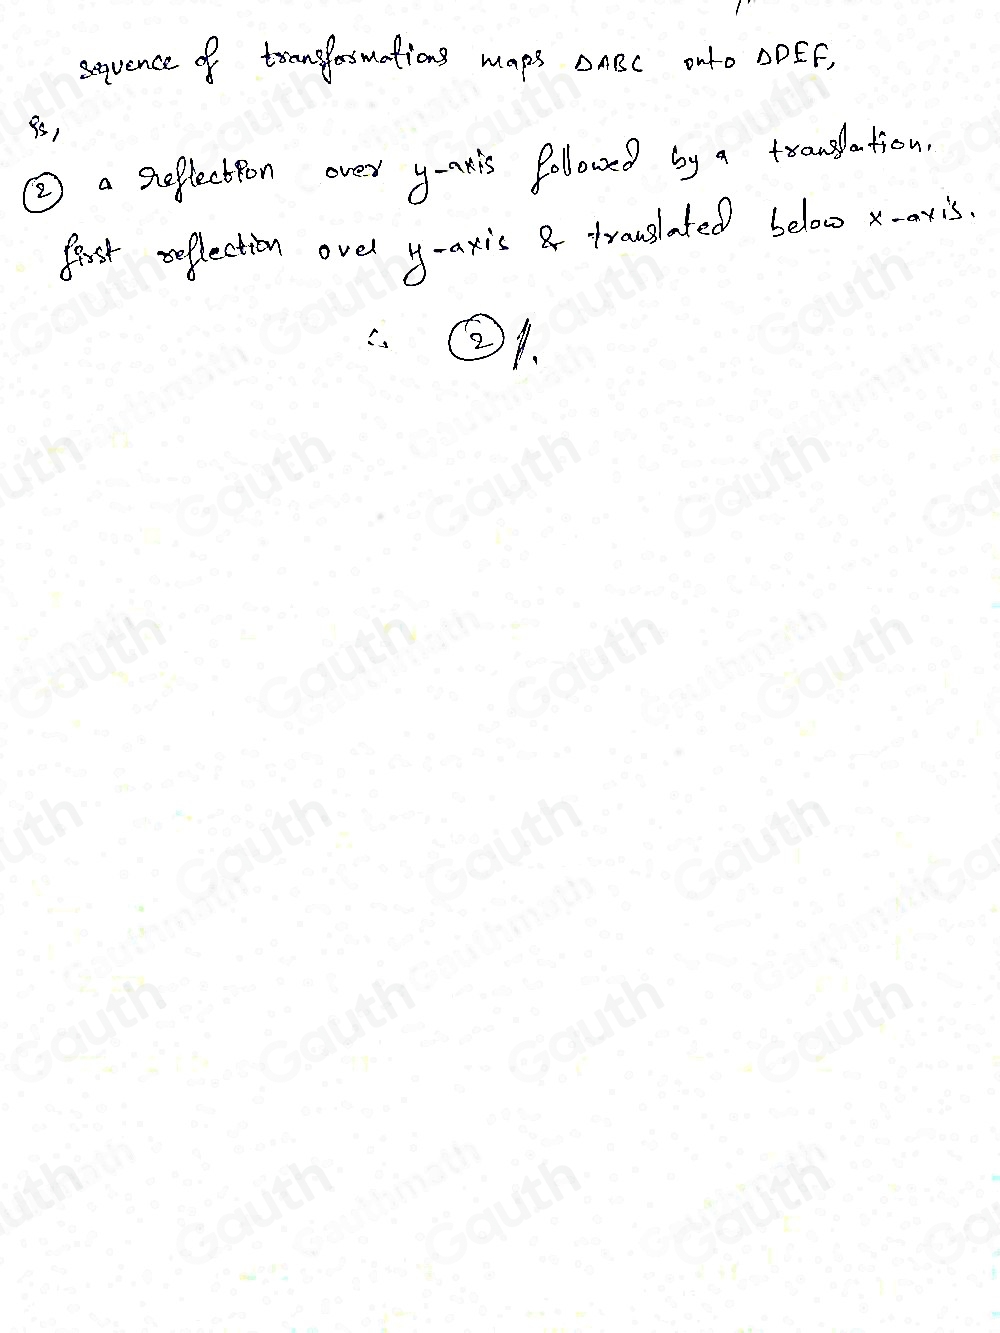 sequence of transformations maps △ABC onto △DEF,
is,
② a reflection over y-axis followed by a translation.
first reflection over y-axis & translated below x-axis.
∴ ②